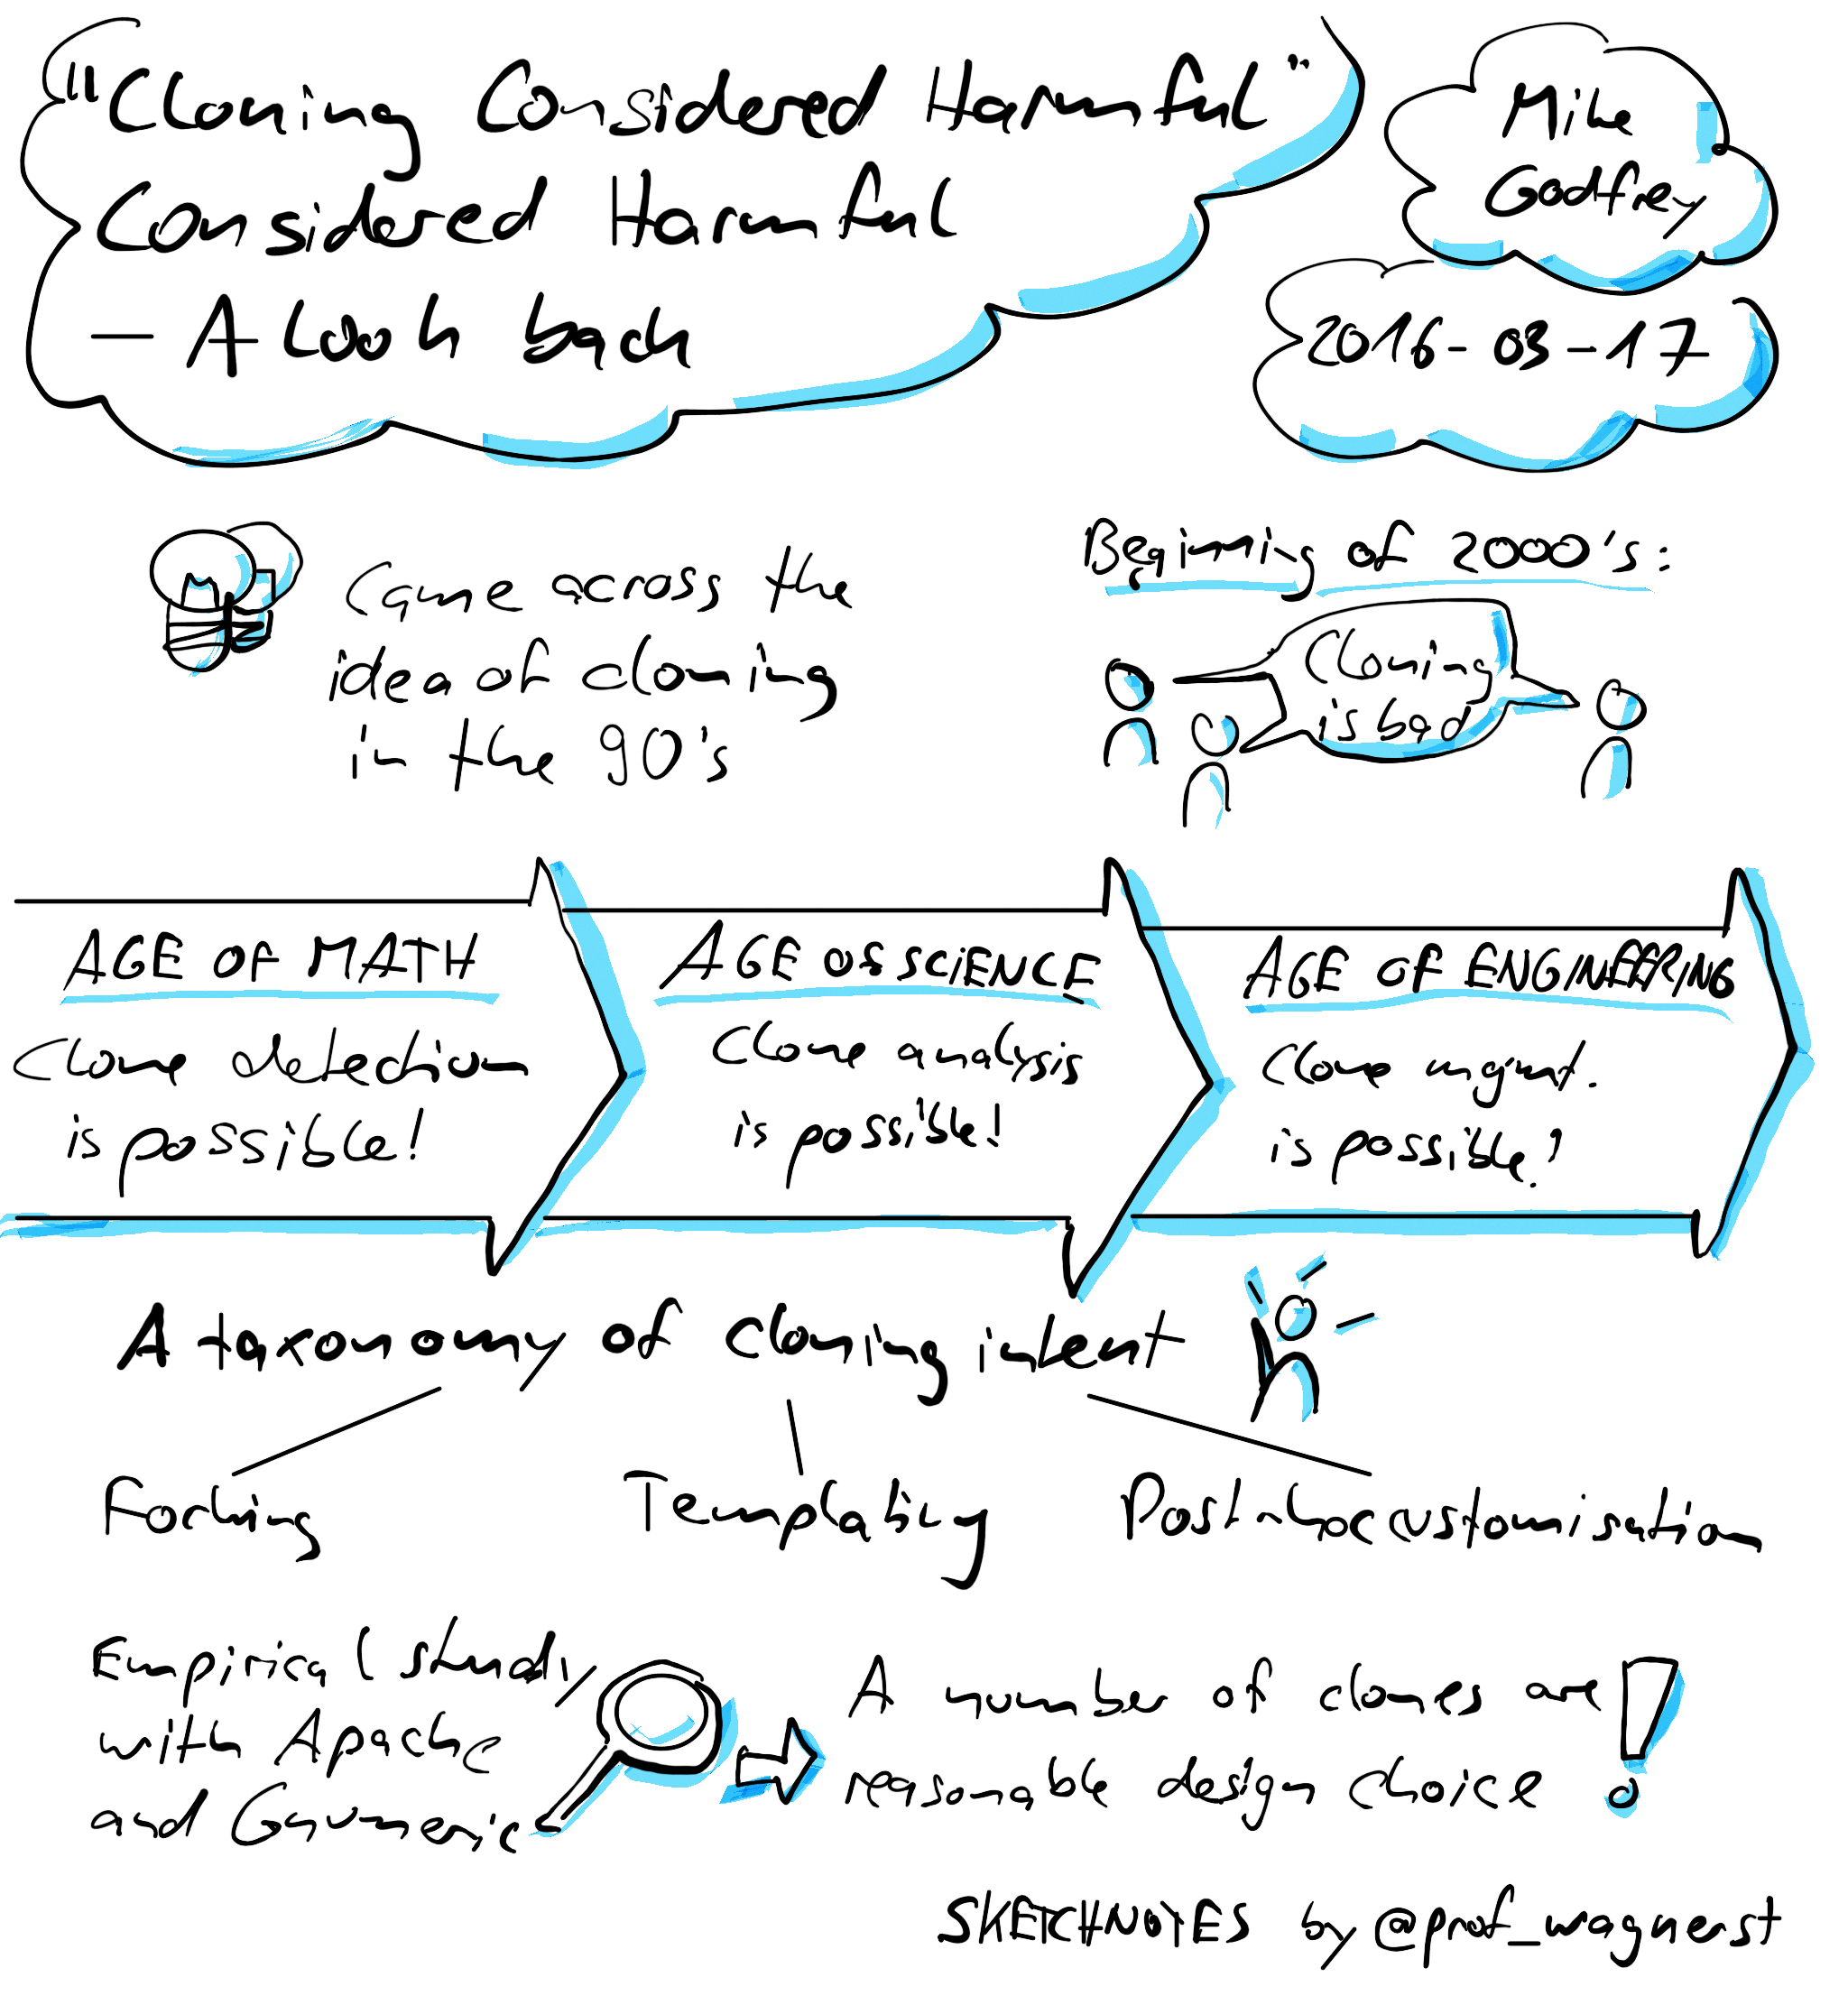 "Cloning Considered Harmful"
Considered Harmful
– A look back
Mike
Godfrey
2016-03-17
Came across the
idea of cloning
in the 90's
Beginning of 2000's:
Cloning
is bad
AGE OF MATH
Clone detection
is possible!
AGE OF SCIENCE
Clone analysis
is possible!
AGE OF ENGINEERING
Clone mgmt.
is possible!
A taxonomy of cloning intent
Forking
Templating
Post-hoc customisation
Empirical study
with Apache
and Gnumeric
A number of clones are
reasonable design choice
SKETCHNOTES by @prof_wagnerst